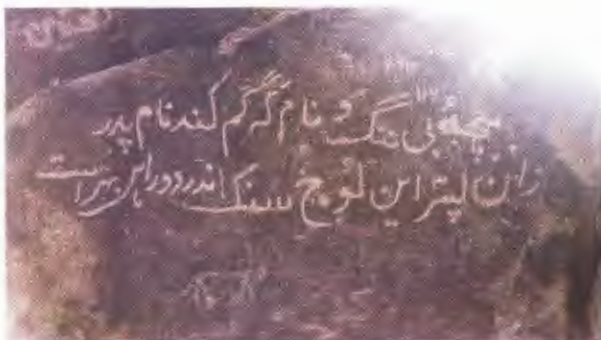 بچهٔ بی ننگ و نام گر گم کند نام پدر
زان پسر این لوح سنگ اندر دوراهی بهتر است